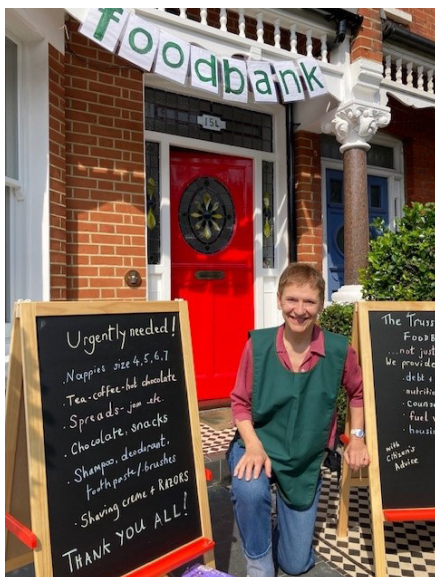 foodbank
154
Urgently needed!
. Nappies size 4,5,6,7
. Tea-coffee-hot chocolate
. Spreads - jam etc.
. Chocolate, snacks
. Shampoo, deodorant,
toothpaste/-brushes
. Shaving creme + RAZORS
THANK YOU ALL!
The Truss
FOODB
...not jus
We provide
. debt +
nutriti
. couns
. fuel v
. housi
with
Citizen's
Advice